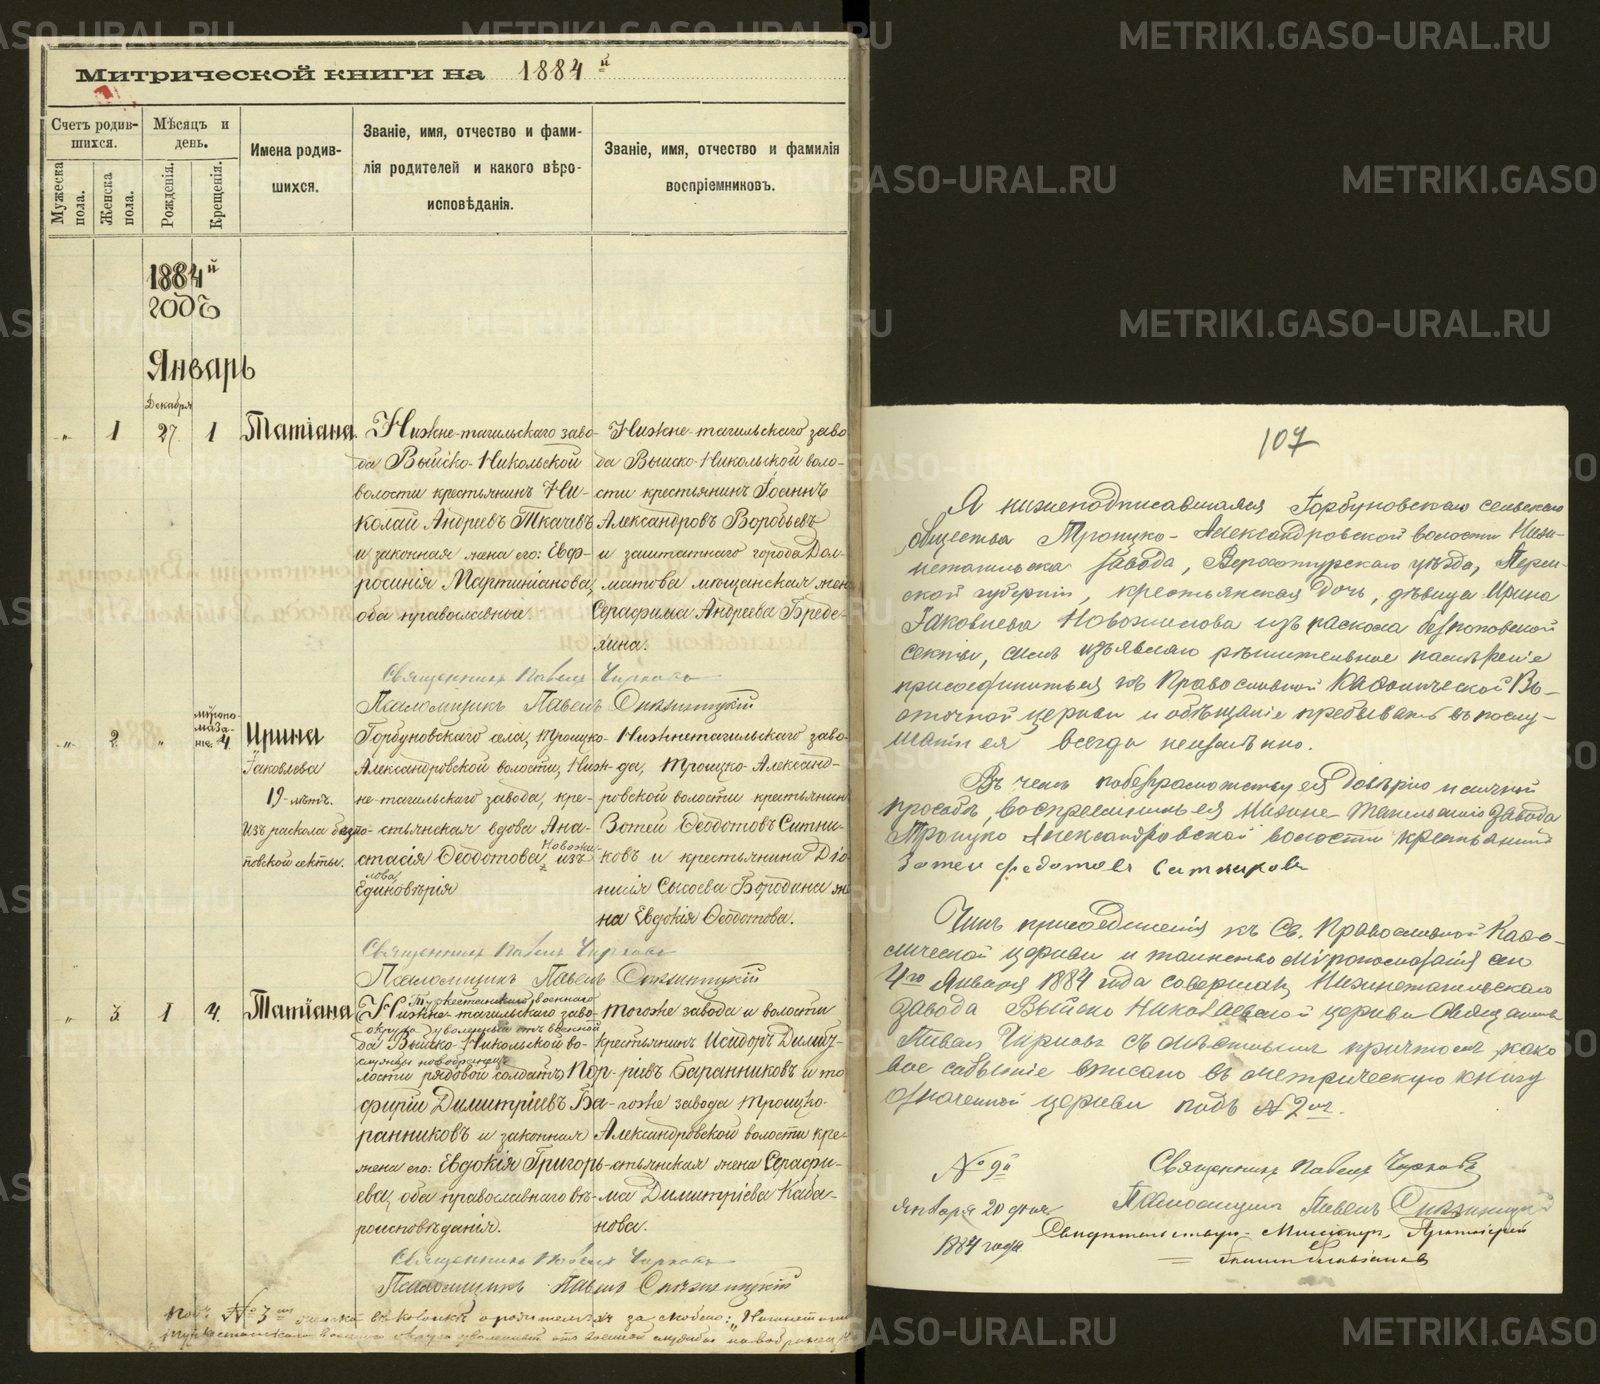 Митрической книги на 1884 й
Счетъ родив-
шихся.
Мужеска
пола.
Женска
пола.
Мѣсяцъ и
день.
Рожденія.
Крещенія.
Имена родив-
шихся.
Званіе, имя, отчество и фами-
лія родителей и какого вѣро-
исповѣданія.
Званіе, имя, отчество и фамилія
воспріемниковъ.
1884 й
годъ
Январь
Декабря
„ 1 27 1 Татіана.
Нижне-тагильскаго заво-
да Выйско-Никольской
волости крестьянинъ Ни-
колай Андреевъ Ткачевъ
и законная жена его: Евф-
росинія Мартиніанова,
оба православные.
Нижне-тагильскаго заво
да Выйско-Никольской воло-
сти крестьянинъ Іоаннъ
Александровъ Воробьевъ
и заштатнаго города Дол-
матова мѣщанская жена
Серафима Андреева Бреде-
хина.
Священникъ Павелъ Чирковъ
Псаломщикъ Павелъ
„ 2 „
мѵропо-
маза-
ніе. 4
Ирина
Іаковлева
19-лѣтъ.
Изъ раскола безпо-
повской секты.
Горбуновскаго села, Троицко-
Александровской волости, Ниж-
не-тагильскаго завода, кре-
стьянская вдова Ана-
стасія Ѳеодотова Новожи-
лова, изъ
Единовѣрія
Нижнетагильскаго заво-
да, Троицко-Александ-
ровской волости крестьянин
Зотей Ѳеодотовъ Ситни-
ковъ и крестьянина Діо-
нисія Сысоева Бородина же
на Евдокія Ѳеодотова.
Священникъ Павелъ Чирковъ
Псаломщикъ Павелъ
„ 3. 1 4. Татіана
Туркестанскаго военнаго
Нижне-тагильскаго заво-
округа уволенный отъ военной
да Выйско-Никольской во-
службы новобранецъ
лости рядовой солдатъ Пор-
фирій Димитріевъ Ба-
ранниковъ и законная
жена его: Евдокія Григорь-
ева, оба православнаго вѣ-
роисповѣданія.
тогоже завода и волости
крестьянинъ Исидоръ Димит-
ріевъ Баранниковъ и то
гоже завода Троицко-
Александровской волости кре-
стьянская жена Серафи-
ма Димитріева Каба-
нова.
Священникъ Павелъ Чирковъ
Псаломщикъ Павелъ
Подъ № 3 въ колонкѣ о родителяхъ
Туркестанскаго военнаго округа уволенный отъ военной службы новобранецъ
107
Я нижеподписавшаяся Горбуновскаго сельскаго
общества Троицко-Александровской волости Ниж-
нетагильска завода, Верхотурскаго уѣзда, Перм-
ской губерніи, крестьянская дочь, дѣвица Ирина
Іаковлева Новожилова изъ раскола безпоповской
секты, симъ изъявляю рѣшительное намѣреніе
присоединиться къ Православной Каѳолической Во-
сточной церкви и обѣщаніе пребывать въ послу-
шаніи ея всегда неизмѣнно.
Въ чемъ по безграмотству ея довѣрію и личной
просьбѣ, воспреемникъ ея Нижне-Тагильскаго завода
Троицко Александровской волости крестьянинъ
Зотей Федотовъ Ситниковъ
Чинъ присоединенія къ Св. Православной Каѳо-
лической церкви и таинство Мѵропомазанія
4го Января 1884 года совершалъ Нижнетагильскаго
завода Выйско Николаевской церкви Священникъ
Павелъ Чирковъ съ причтомъ, како-
вое событіе вписано въ метрическую книгу
означенной церкви подъ № 2
№ 9й
Января 20 дня
1884 года
Священникъ Павелъ Чирковъ
Псаломщикъ Павелъ
Миссіонеръ, Протоіерей
METRIKI.GASO-URAL.RU